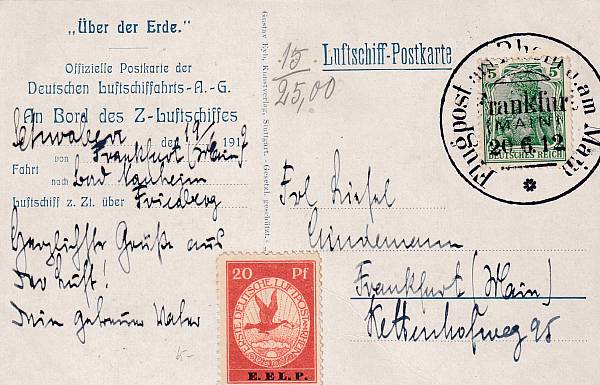 „Über der Erde."
Offizielle Postkarte der
Deutschen Luftschiffahrts-A.-G.
An Bord des Z-Luftschiffes
Schwaben den 19/ 191
von Frankfurt (Main)
Fahrt
nach Bad Nauheim
Luftschiff z. Zt. über Friedberg
Herzlichste Grüße aus
der Luft!
Dein getreuer Vater
Gustav Eyb, Kunstverlag, Stuttgart. Gesetzl. geschützt.
15
25,00
Luftschiff-Postkarte
Frl Liesel
Lindemann
Frankfurt (Main)
Kettenhofweg 95
5 5
DEUTSCHES REICH
Flugpost am Rhein u. am Main
Frankfurt
(MAIN)
20 6 12
20 Pf
ERSTE DEUTSCHE LUFTPOST AM RHEIN
E. EL. P.